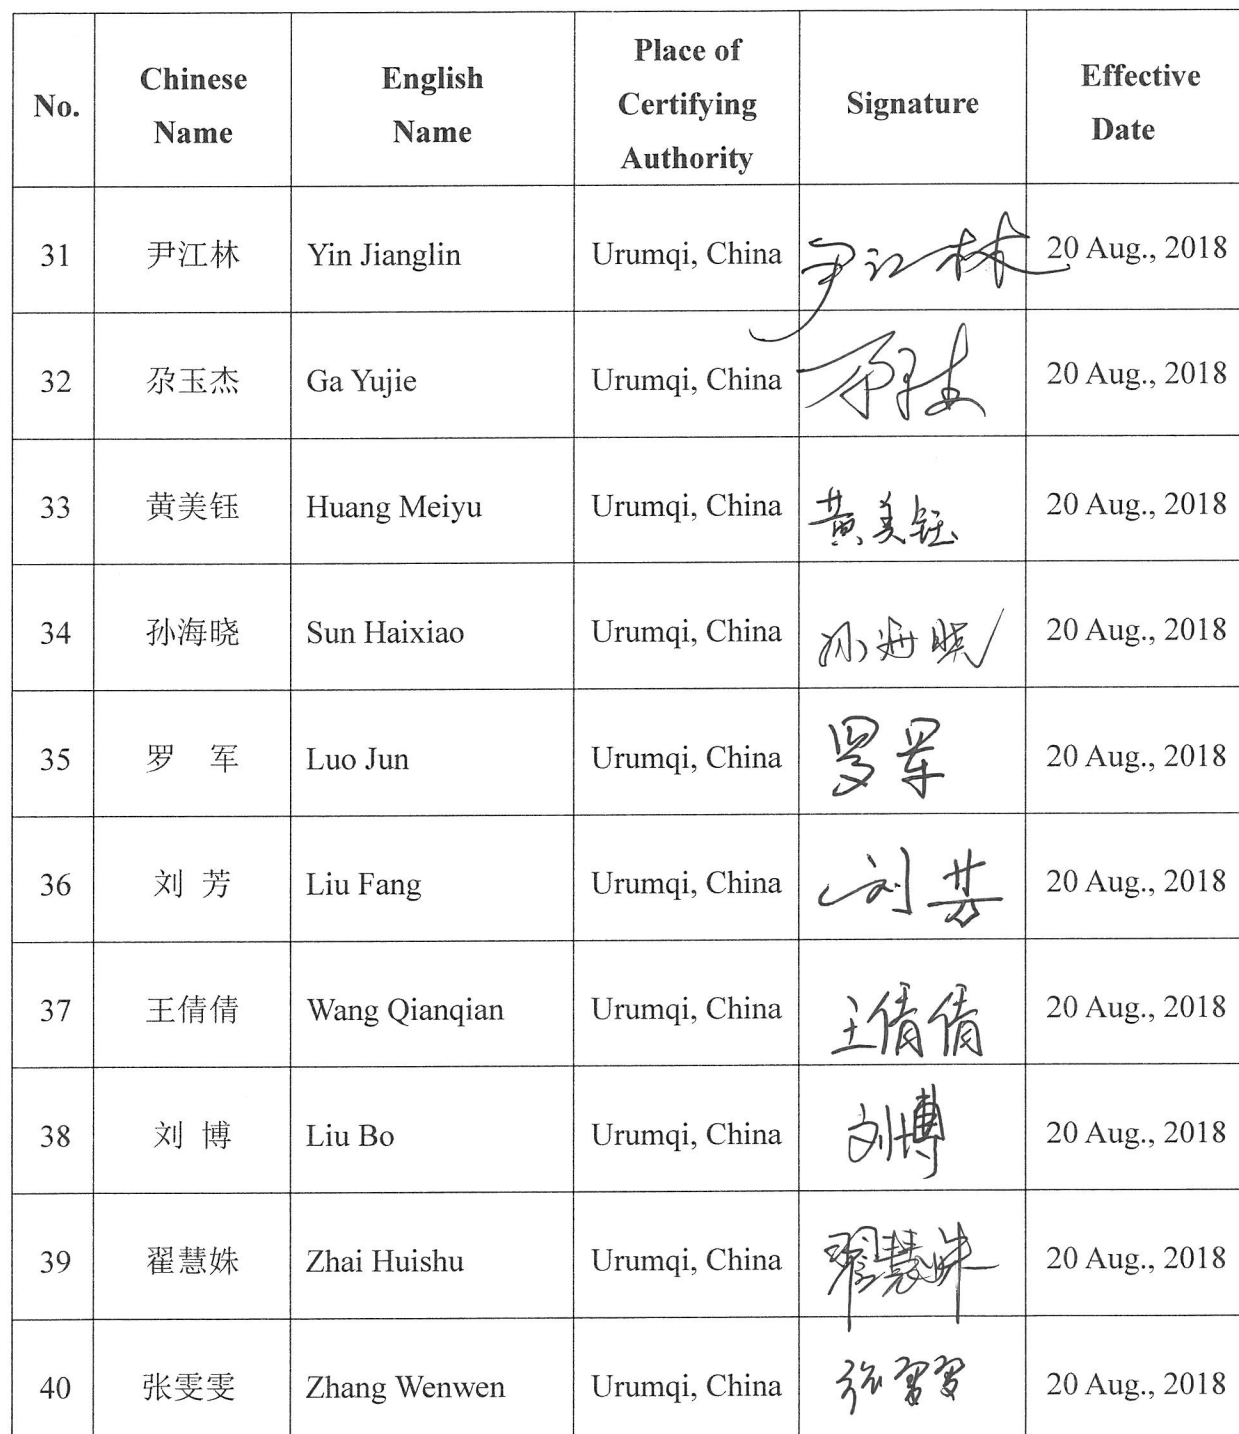 No. Chinese Name English Name Place of Certifying Authority Signature Effective Date
31 尹江林 Yin Jianglin Urumqi, China 尹江林 20 Aug., 2018
32 尕玉杰 Ga Yujie Urumqi, China 20 Aug., 2018
33 黄美钰 Huang Meiyu Urumqi, China 黄美钰 20 Aug., 2018
34 孙海晓 Sun Haixiao Urumqi, China 孙海晓 20 Aug., 2018
35 罗 军 Luo Jun Urumqi, China 罗军 20 Aug., 2018
36 刘 芳 Liu Fang Urumqi, China 刘芳 20 Aug., 2018
37 王倩倩 Wang Qianqian Urumqi, China 王倩倩 20 Aug., 2018
38 刘 博 Liu Bo Urumqi, China 刘博 20 Aug., 2018
39 翟慧姝 Zhai Huishu Urumqi, China 翟慧姝 20 Aug., 2018
40 张雯雯 Zhang Wenwen Urumqi, China 张雯雯 20 Aug., 2018